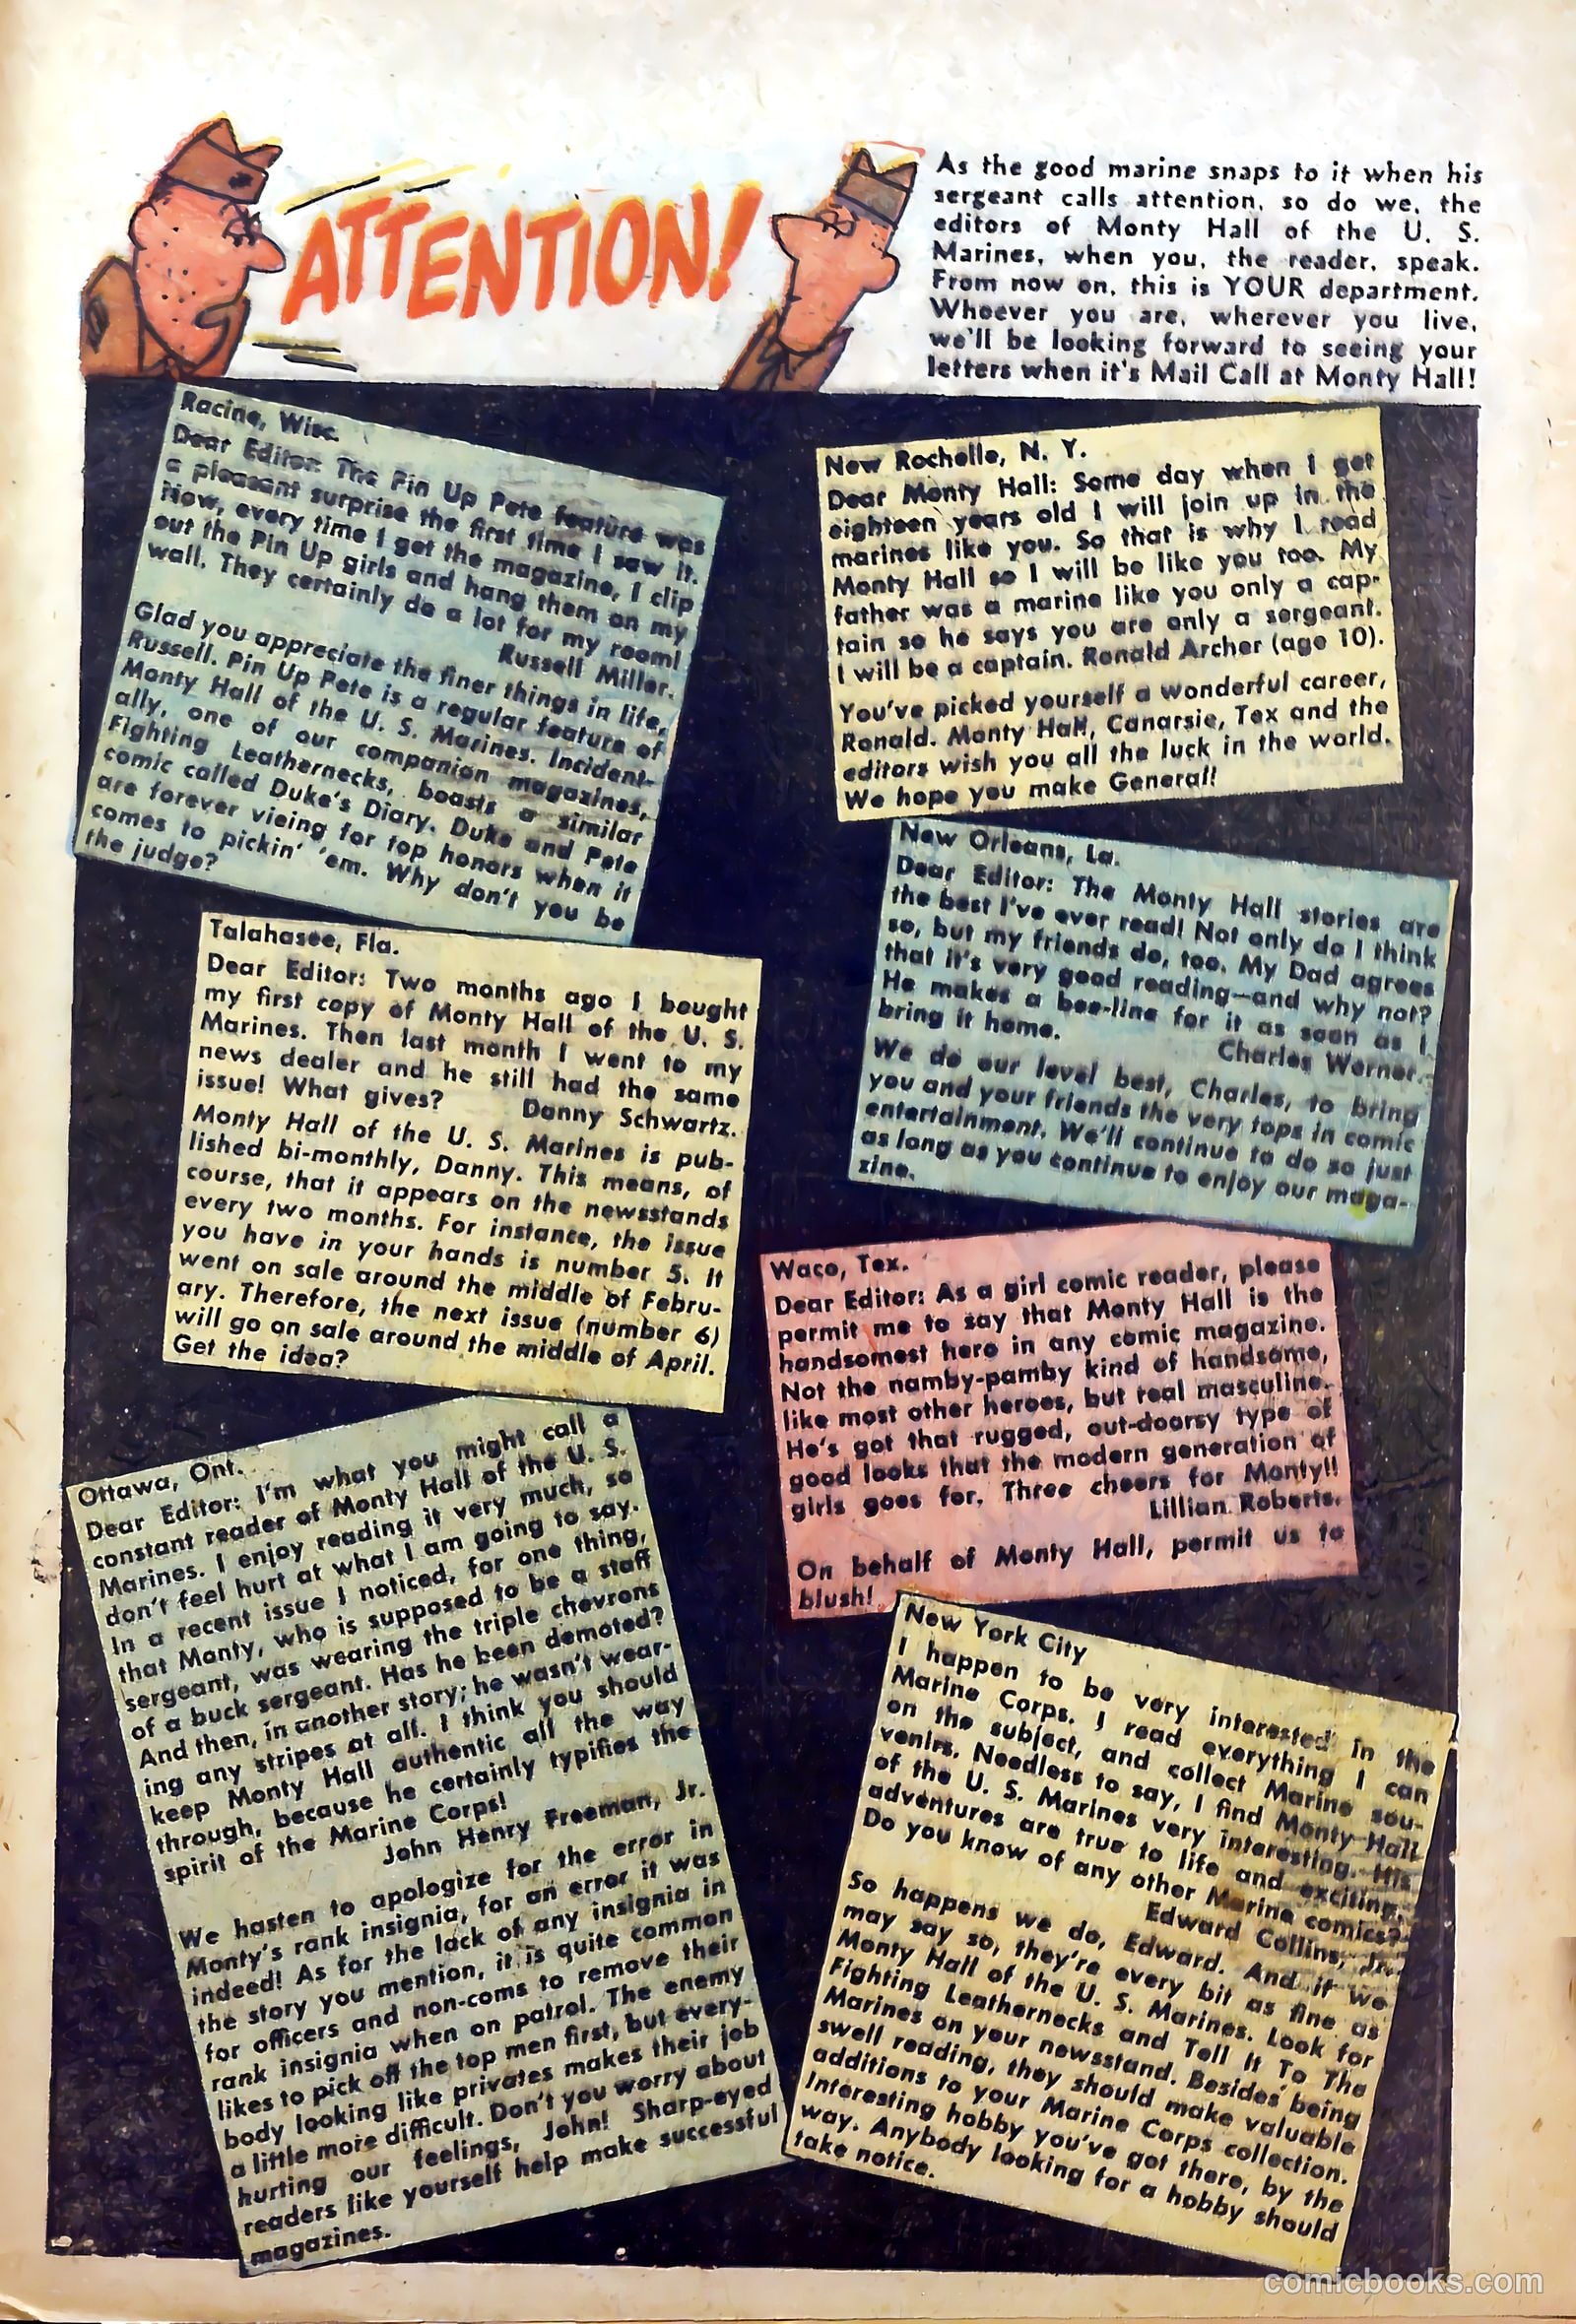 ATTENTION!
As the good marine snaps to it when his
sergeant calls attention, so do we, the
editors of Monty Hall of the U. S.
Marines, when you, the reader, speak.
From now on, this is YOUR department.
Whoever you are, wherever you live,
we'll be looking forward to seeing your
letters when it's Mail Call at Monty Hall!
Racine, Wisc.
Dear Editor: The Pin Up Pete feature was
a pleasant surprise the first time I saw it.
Now, every time I get the magazine, I clip
out the Pin Up girls and hang them on my
wall. They certainly do a lot for my room!
Russell Miller.
Glad you appreciate the finer things in life,
Russell. Pin Up Pete is a regular feature of
Monty Hall of the U. S. Marines. Incident-
ally, one of our companion magazines,
Fighting Leathernecks, boasts a similar
comic called Duke's Diary. Duke and Pete
are forever vieing for top honors when it
comes to pickin' 'em. Why don't you be
the judge?
Talahasee, Fla.
Dear Editor: Two months ago I bought
my first copy of Monty Hall of the U. S.
Marines. Then last month I went to my
news dealer and he still had the same
issue! What gives? Danny Schwartz.
Monty Hall of the U. S. Marines is pub-
lished bi-monthly, Danny. This means, of
course, that it appears on the newsstands
every two months. For instance, the issue
you have in your hands is number 5. It
went on sale around the middle of Febru-
ary. Therefore, the next issue (number 6)
will go on sale around the middle of April.
Get the idea?
Ottawa, Ont.
Dear Editor: I'm what you might call a
constant reader of Monty Hall of the U. S.
Marines. I enjoy reading it very much, so
don't feel hurt at what I am going to say.
In a recent issue I noticed, for one thing,
that Monty, who is supposed to be a staff
sergeant, was wearing the triple chevrons
of a buck sergeant. Has he been demoted?
And then, in another story; he wasn't wear-
ing any stripes at all. I think you should
keep Monty Hall authentic all the way
through, because he certainly typifies the
spirit of the Marine Corps!
John Henry Freeman, Jr.
We hasten to apologize for the error in
Monty's rank insignia, for an error it was
indeed! As for the lack of any insignia in
the story you mention, it is quite common
for officers and non-coms to remove their
rank insignia when on patrol. The enemy
likes to pick off the top men first, but every-
body looking like privates makes their job
a little more difficult. Don't you worry about
hurting our feelings, John! Sharp-eyed
readers like yourself help make successful
magazines.
New Rochelle, N. Y.
Dear Monty Hall: Some day when I get
eighteen years old I will join up in the
marines like you. So that is why I read
Monty Hall so I will be like you too. My
father was a marine like you only a cap-
tain so he says you are only a sergeant.
I will be a captain. Ronald Archer (age 10).
You've picked yourself a wonderful career,
Ronald. Monty Hall, Canarsie, Tex and the
editors wish you all the luck in the world.
We hope you make General!
New Orleans, La.
Dear Editor: The Monty Hall stories are
the best I've ever read! Not only do I think
so, but my friends do, too. My Dad agrees
that it's very good reading—and why not?
He makes a bee-line for it as soon as I
bring it home.
Charles Werner.
We do our level best, Charles, to bring
you and your friends the very tops in comic
entertainment. We'll continue to do so just
as long as you continue to enjoy our maga-
zine.
Waco, Tex.
Dear Editor: As a girl comic reader, please
permit me to say that Monty Hall is the
handsomest hero in any comic magazine.
Not the namby-pamby kind of handsome,
like most other heroes, but real masculine.
He's got that rugged, out-doorsy type of
good looks that the modern generation of
girls goes for. Three cheers for Monty!!
Lillian Roberts.
On behalf of Monty Hall, permit us to
blush!
New York City
I happen to be very interested in the
Marine Corps. I read everything I can
on the subject, and collect Marine sou-
venirs. Needless to say, I find Monty Hall
of the U. S. Marines very interesting. His
adventures are true to life and exciting.
Do you know of any other Marine comics?
Edward Collins, Jr.
So happens we do, Edward. And if we
may say so, they're every bit as fine as
Monty Hall of the U. S. Marines. Look for
Fighting Leathernecks and Tell It To The
Marines on your newsstand. Besides being
swell reading, they should make valuable
additions to your Marine Corps collection.
Interesting hobby you've got there, by the
way. Anybody looking for a hobby should
take notice.
comicbooks.com